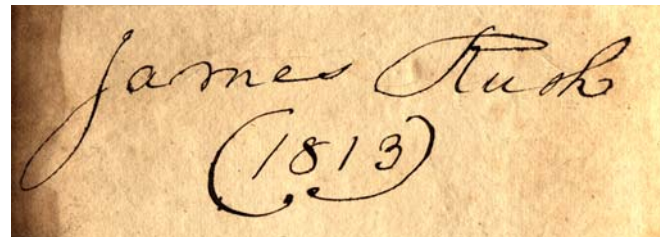 James Rush
(1813)